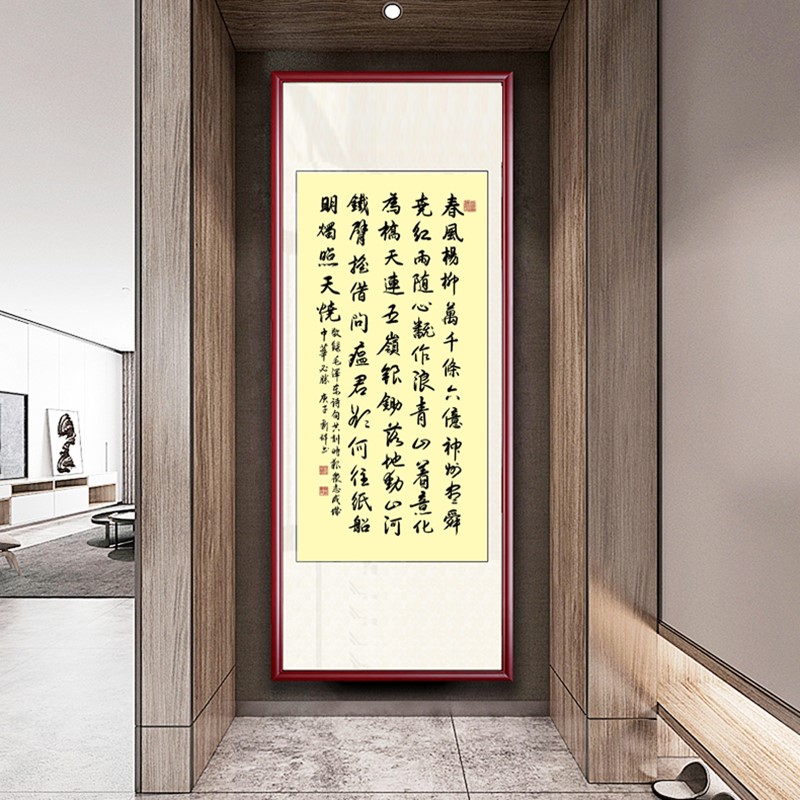 春風楊柳萬千條六億神州尽舜
尭红雨随心翻作浪青山着意化
為橋天連五嶺銀鋤落地動山河
鐵臂摇借问瘟君欲何往紙船
明燭照天燒
敬録毛澤东诗句共剋時艱衆志成城
中華必勝 庚子